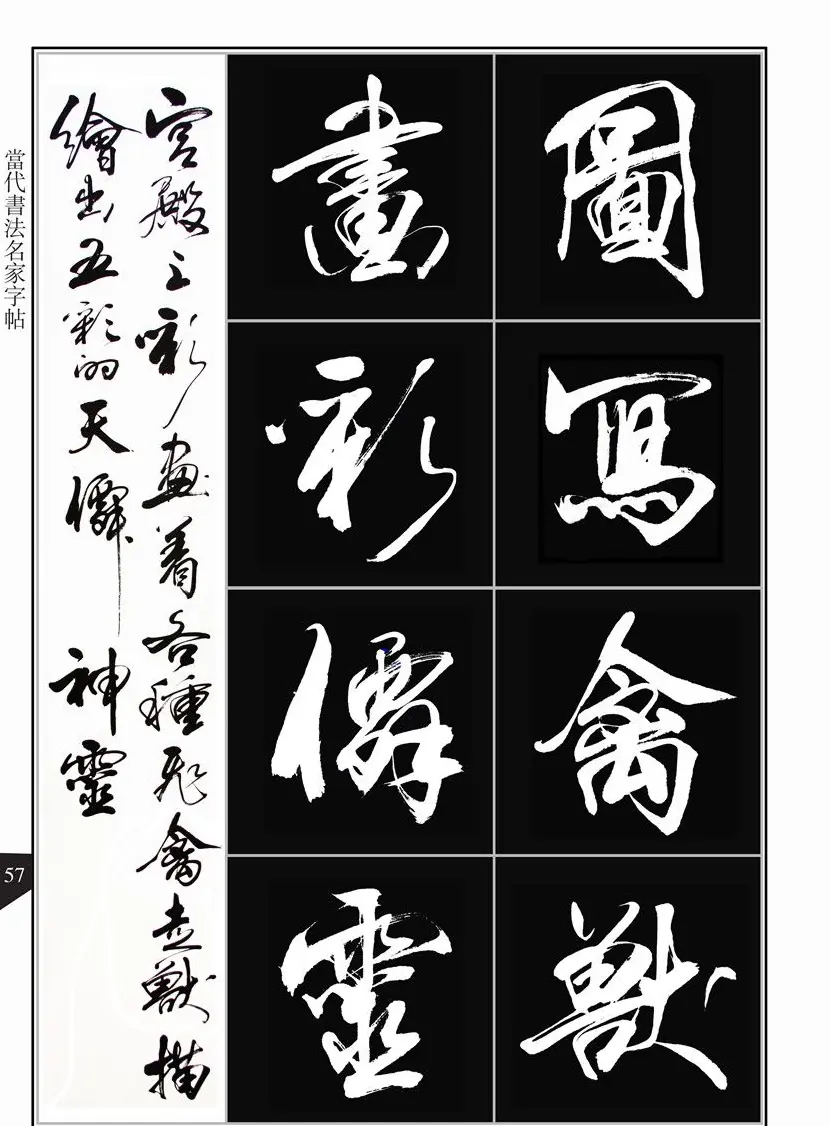 圖寫禽獸
畫彩僊靈
宮殿上彩畫着各種飛禽走獸描
繪出五彩的天僊神靈
當代書法名家字帖
57